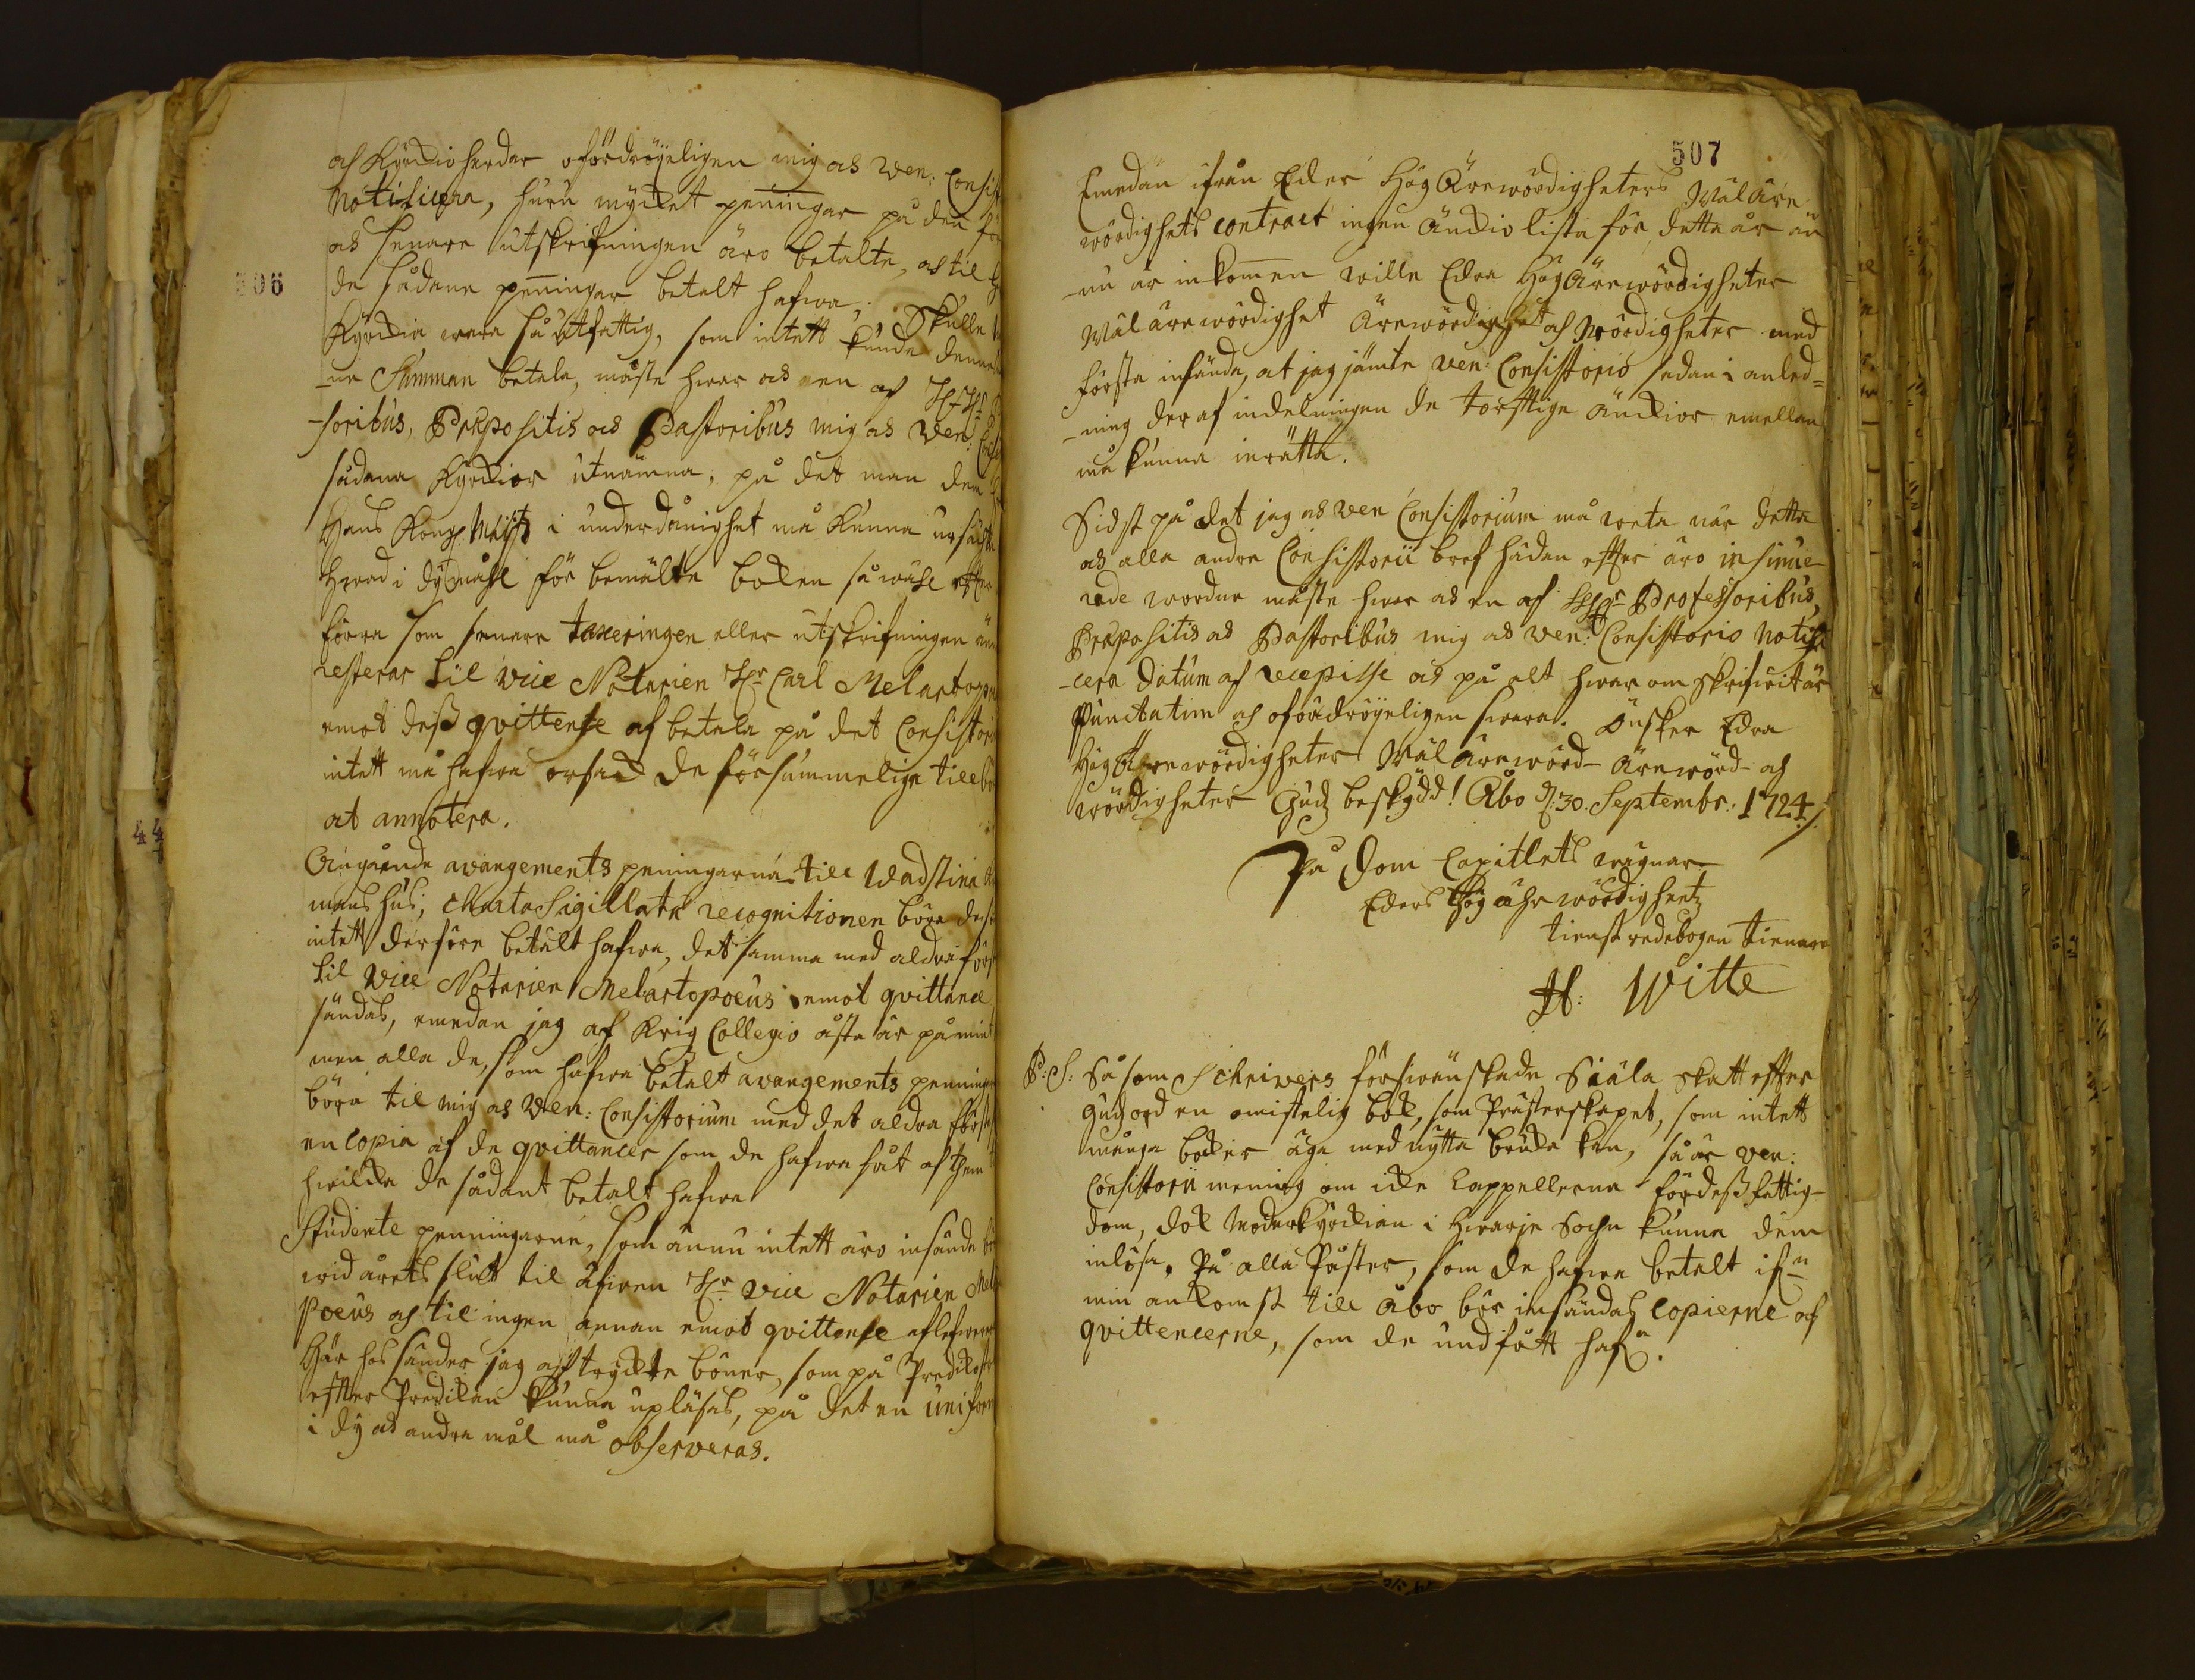 506
och Kyrkioherdar ofördröyeligen mig och Ven: Consis
Notificera, huru mycket penningar på den för
och senare utskrifningen äro betalte, och til
de sådane penningar betalt hafwa. Skulle
Kyrckia wara så utfattig, som intett kunde denne
ne Summan betala, måste hwar och en af HrHr
-soribus, Præpositis och Pastoribus mig och Ven:
sådana Kyrckior utnämna, på det man dem
Hans Kongl. Maijts i underdånighet må kunna ursäckta
Hwad i dymåhl för bemälte boken så wähl
förra som senare taxeringen eller utskrifningen
resterar til Vice Notarien Hr Carl Melartopæ
emot dess qvittense af betala på det Consistori
intett må hafwa orsak de försummelige till
at annotera.
Angående avangements peningarna till Wadstina
manshus; Charta Sigillatæ recognitionen böra
intett derföre betalt hafwa, det samma med aldraförs
til Vice Notarien Melartopoeus emot qvittance
sändas, emedan jag af Krigs Collegio åfta är påmint
men alla de, som hafwa betalt avangements penningar
böra til mig och Ven: Consistorium med det aldra första
en Copia af de qvittancer som de hafwa fåt af them
hwilka de sådant betalt hafwa
Studente penningarne, som ännu intett äro insände
wid åretz slut til åfwan Hr Vice Notarien Mel
poeus och til ingen annan emot qvittense aflefwere
Här hos sänder jag af tryckte böner, som på Predikost
effter Predikan kunna upläsas, på det en uniform
i dy och andra mål må observeras.
507
Emedan ifrån Eder HögÄrewördigheters WälÄre
wördighets Contract ingen Änckio lista för detta år än
-nu är inkommen wille Edra HögÄrewördigheter
Wäl ärewördighet Ärewördighet och Wördigheter med
första insända, at jag jämte Ven: Consistorio sedan i anled=
-ning deraf indelningen de torftige Änckior emellan
må kunna inrätta.
Sidst på det jag och Ven Consistorium må weta när detta
och alla andra Consistorii bref hädan effter äro insinue-
rade wordne måste hwar och en af HHr Professoribus,
Præpositis och Pastoribus mig och Ven: Consistorio notifi
-cera datum af recepisse och på alt hwar om skrifwit är
Punctatim och ofördröyeligen swara. Önsker Edra
HögÄrewördigheter WälÄrewörd- Ärewörd- och
wördigheter Gudz beskydd! Åbo d: 30. Septembr: 1724./.
På Dom Capitlets wägnar
Eders Hög ährwördigheetz
tienst redebogen tienare
H: Witte
P.S: Så som Schrivers förswänskade Siäla skatt effter
Gudz ord en omistelig bok, som Prästerskapet, som intett
många böcker äga med nytta bruka kan, så är Ven:
Consistorii mening om icke Cappellerna för dess fattig-
dom, dock Moderkyrckian i Hwarje Sochn kunna dem
inlösa. På alla Poster, som de hafwa betalt ifrn
min ankomst till Åbo bör insändas Copierne af
qvittencerne, som de undfått haf.
44